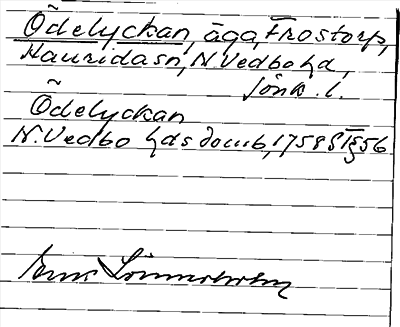 Ödelyckan, äga, Frostorp,
Hauridasn, N. Vedbo hd,
Jönk. l.
Ödelyckan
N. Vedbo hds domb, 1758 §56